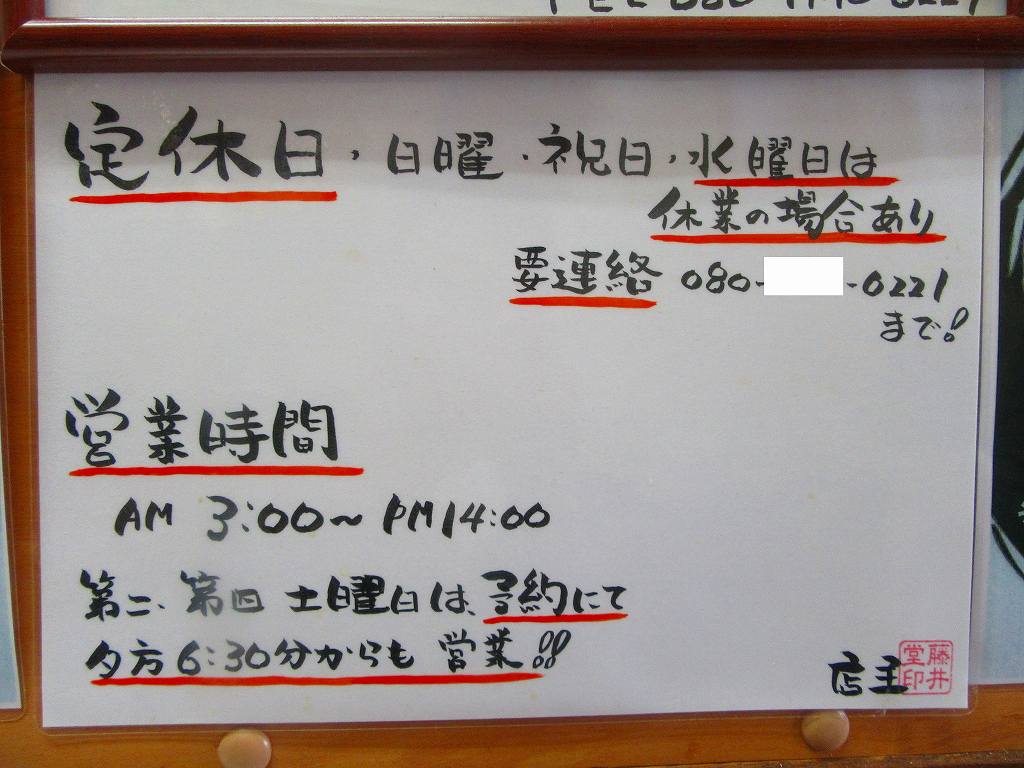 定休日・日曜・祝日・水曜日は
休業の場合あり
要連絡 080- -0221
まで!
営業時間
AM 3:00~PM14:00
第二、第四 土曜日は、予約にて
夕方6:30分からも 営業!!
店主
藤井
堂印